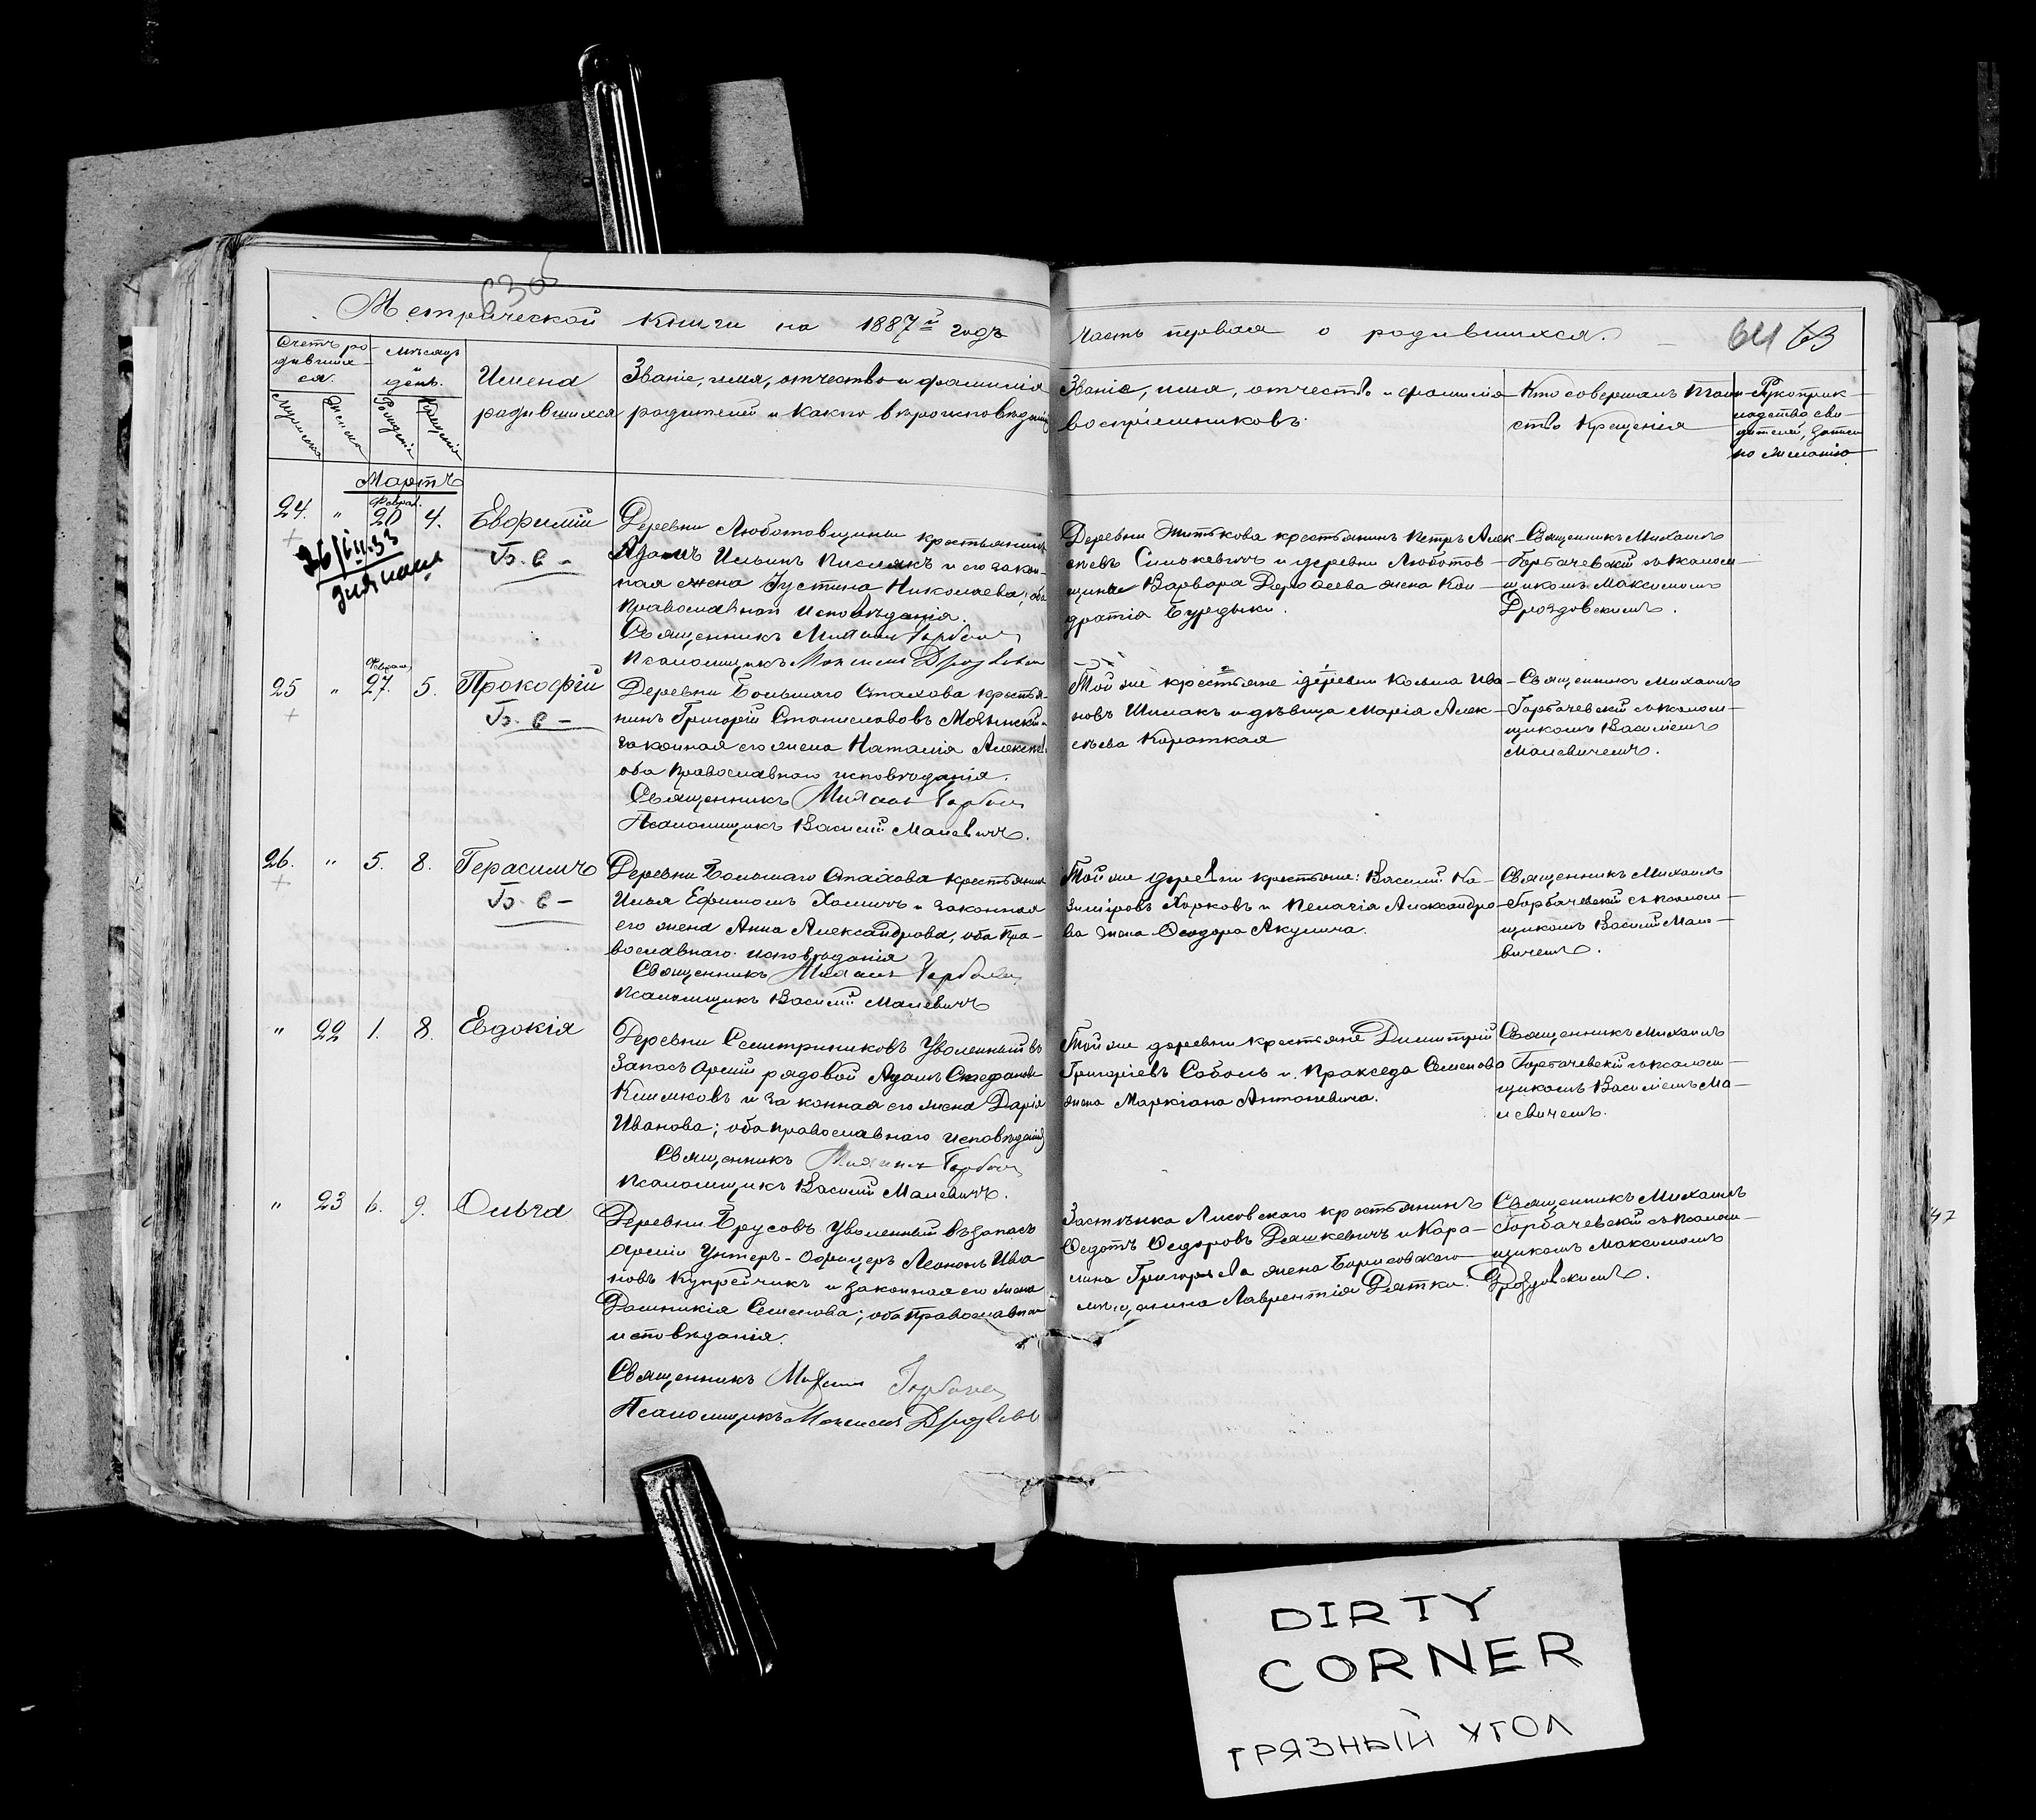 63 об
Метрической книги на 1887й годъ
часть первая о родившихся.
64 63
Счетъ ро-
дивших-
ся.
Мѣсяцъ
и
день.
Имена
родившихся
Званіе, имя, отчество и фамилія
родителей и какого вѣроисповѣданія
Званіе, имя, отчество и фамилія
воспріемниковъ.
Кто совершалъ таин-
ство крещенія
Рукоприк-
ладство сви-
дѣтелей, записи
по желанію
Мужеска
Женска
Рожденія
Крещенія
Мартъ
24. " Феврал. 20 4. Евфимій
Б. в -
Деревни Люботовщины крестьянинъ
Адамъ Ильинъ Кислякъ и его закон-
ная жена Іустина Николаева; оба
православной исповѣданія.
Священникъ Михаилъ Горбач
Псаломщикъ Максимъ Дроздовск
Деревни Житькова крестьянинъ Петръ Алек-
сѣевъ Синькевичъ и деревни Люботов-
щины Варвара Дорофеева жена Кон-
дратія Бурдыки.
Священникъ Михаилъ
Горбачевскій съ псалом-
щикомъ Максимомъ
Дроздовскимъ.
25 " Феврал. 27. 5. Прокофій
Б. в -
Деревни Большаго Стахова крестья-
нинъ Григорій Станиславовъ
законная его жена Наталія Алексѣев
оба православнаго исповѣданія.
Священникъ Михаилъ Горбач
Псаломщикъ Василій Малевичъ.
Той же крестьяне деревни Козьма Ива-
новъ Шилакъ и дѣвица Марія Алек-
сѣева Короткая
Священникъ Михаилъ
Горбачевскій съ псалом-
щикомъ Василіемъ
Малевичемъ.
26. " 5. 8. Герасимъ
Б. в -
Деревни Большаго Стахова крестьянинъ
Илья Ефимовъ Хомичъ и законная
его жена Анна Александрова, оба пра-
вославнаго исповѣданія
Священникъ Михаилъ Горбачев
Псаломщикъ Василій Малевичъ
Той же деревни крестьяне: Василій Ка-
зиміровъ Хорковъ и Пелагія Александро-
ва жена Ѳеодора Акулича.
Священникъ Михаилъ
Горбачевскій съ псалом-
щикомъ Василій Мале-
вичемъ.
" 22 1. 8. Евдокія
Деревни Семтриниковъ Уволенный въ
запасъ арміи рядовой Адамъ Стефановъ
и законная его жена Дарія
Иванова; оба православнаго исповѣданія
Священникъ Михаилъ Горбач
Псаломщикъ Василій Малевичъ.
Той же деревни крестьяне Димитрій
Григоріевъ Соболь и Пракседа Семенова
жена Маркіана Антоневича.
Священникъ Михаилъ
Горбачевскій съ псалом-
щикомъ Василіемъ Ма-
левичемъ.
" 23 6. 9. Ольга
Деревни Брусовъ Уволенный въ запасъ
арміи Унтеръ-Офицеръ Леонъ Ива-
новъ Купрейчикъ и законная его жена
Домникія Семенова; оба православнаго
исповѣданія.
Священникъ Михаил Горбачев
Псаломщикъ Максимъ Дроздовс
Застѣнка Лисовскаго крестьянинъ
Ѳедотъ Ѳедоровъ Дашкевичъ и Каро-
лина Григорьева жена Борисовскаго
мѣщанина Лаврентія Дятки.
Священникъ Михаилъ
Горбачевскій съ псалом-
щикомъ Максимомъ
Дроздовскимъ.
47
DIRTY
CORNER
ГРЯЗНЫЙ УГОЛ